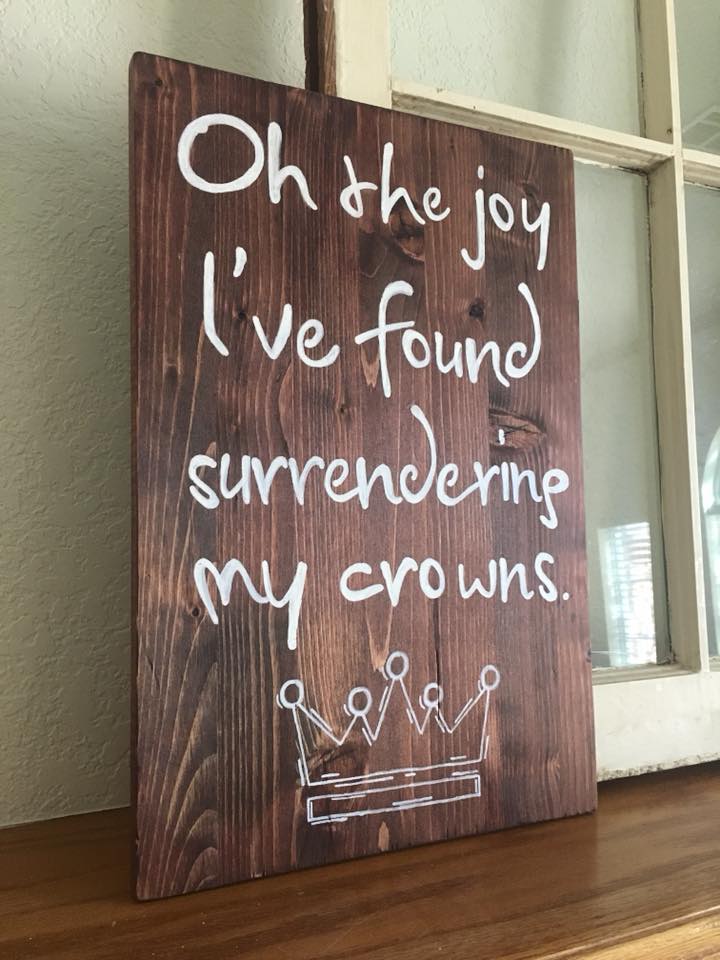 Oh the joy
I've found
surrendering
my crowns.